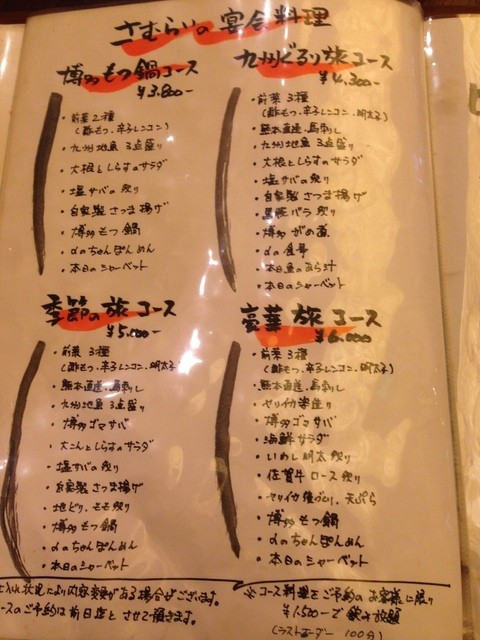 さむらいの宴会料理
博多もつ鍋コース
¥3.800-
・前菜2種
(酢もつ、辛子レンコン)
・九州地魚 3点盛り
・大根としらすのサラダ
・塩サバの炙り
・自家製 さつま揚げ
・博多 もつ鍋
・〆のちゃんぽんめん
・本日のシャーベット
九州ぐるり旅コース
¥4.300-
・前菜 3種
(酢もつ、辛子レンコン、明太子)
・熊本直送、馬刺し
・九州地魚 3点盛り
・大根としらすのサラダ
・塩サバの炙り
・自家製 さつま揚げ
・黒豚バラ炙り
・博多 がめ煮
・〆の
・本日魚のあら汁
・本日のシャーベット
季節の旅コース
¥5.000-
・前菜 3種
(酢もつ、辛子レンコン、明太子)
・熊本直送、馬刺し
・九州地魚 3点盛り
・博多ゴマサバ
・大こんとしらすのサラダ
・塩サバの炙り
・自家製 さつま揚げ
・地どり、もも炙り
・博多 もつ鍋
・〆のちゃんぽんめん
・本日のシャーベット
豪華 旅 コース
¥6.000-
・前菜 3種
(酢もつ、辛子レンコン、明太子)
・熊本直送、馬刺し
・ヤリイカ姿造り
・博多ゴマサバ
・海鮮サラダ
・いわし明太炙り
・佐賀牛 ロース 炙り
・ヤリイカ後づくり、天ぷら
・博多 もつ鍋
・〆のちゃんぽんめん
・本日のシャーベット
入れ状況により内容変更がある場合がございます。
コースのご予約は前日迄とさせて頂きます。
※コース料理をご予約のお客様に限り
¥1,500-で飲み放題
(ラストオーダー 100分)